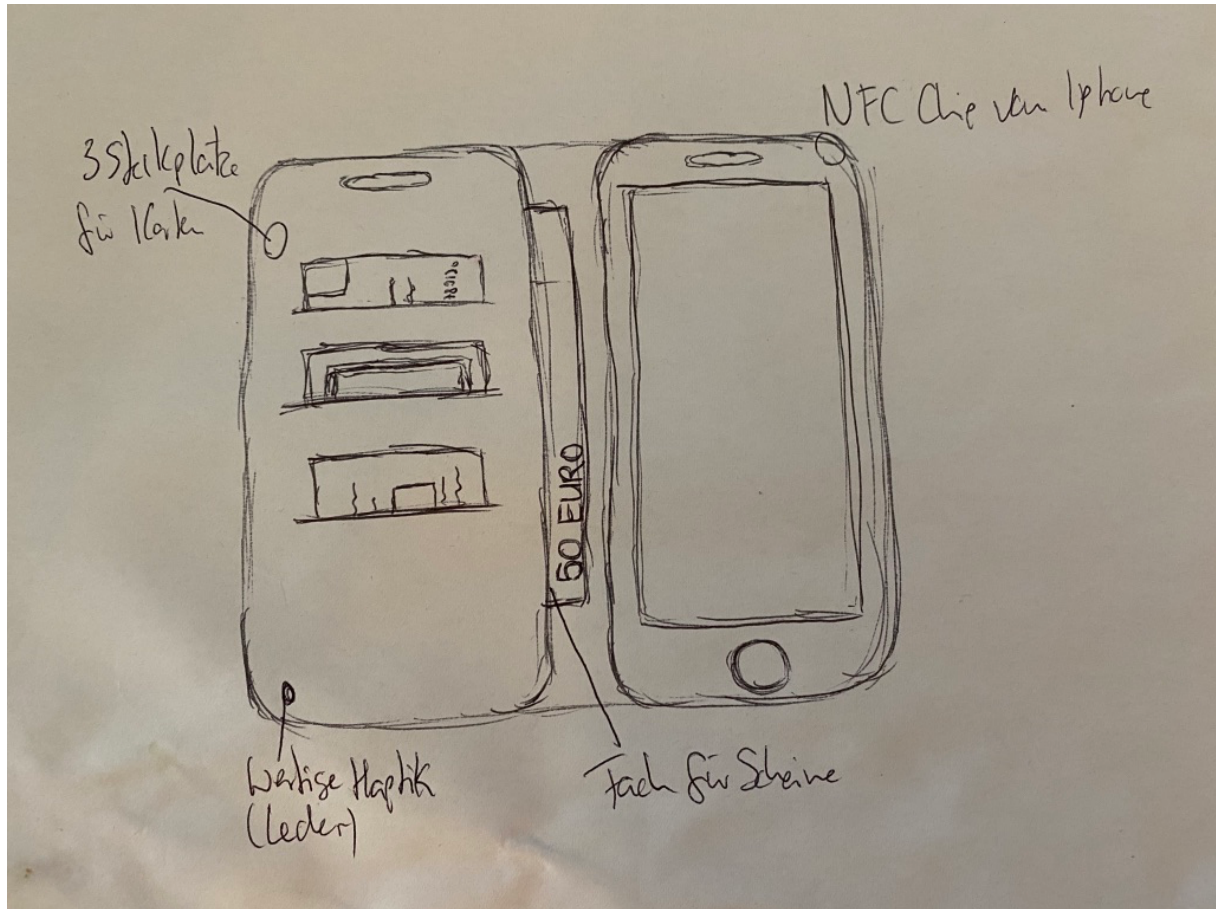 NFC Chip von Iphone
3 Steckplätze
für Karten
50 EURO
Wertige Haptik
(Leder)
Fach für Scheine